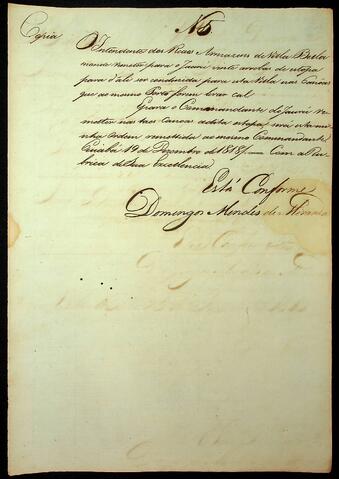 Copia
N5
O Intendente dos Reaes Armazens de Villa Bella
mande remetter para o Jaurú vinte arrobas de estopa
para d'ali ser conduzida para esta Villa nas Canôas
que ao mesmo Porto forem levar cal
O Comandante de Jaurú re-
metter nas tres Canoas a dita estopa, será esta mi-
nha Ordem remettida ao mesmo Commandante.
Cuiabá 19 de Dezembro de 1818 // Com a Ru-
brica de Sua Excellencia
Está Conforme
Domingos Mendes de